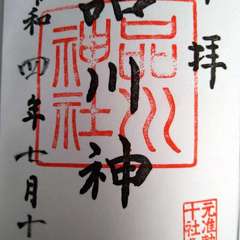 拝
品川神
品川
神社
和四年七月十
元准
十社